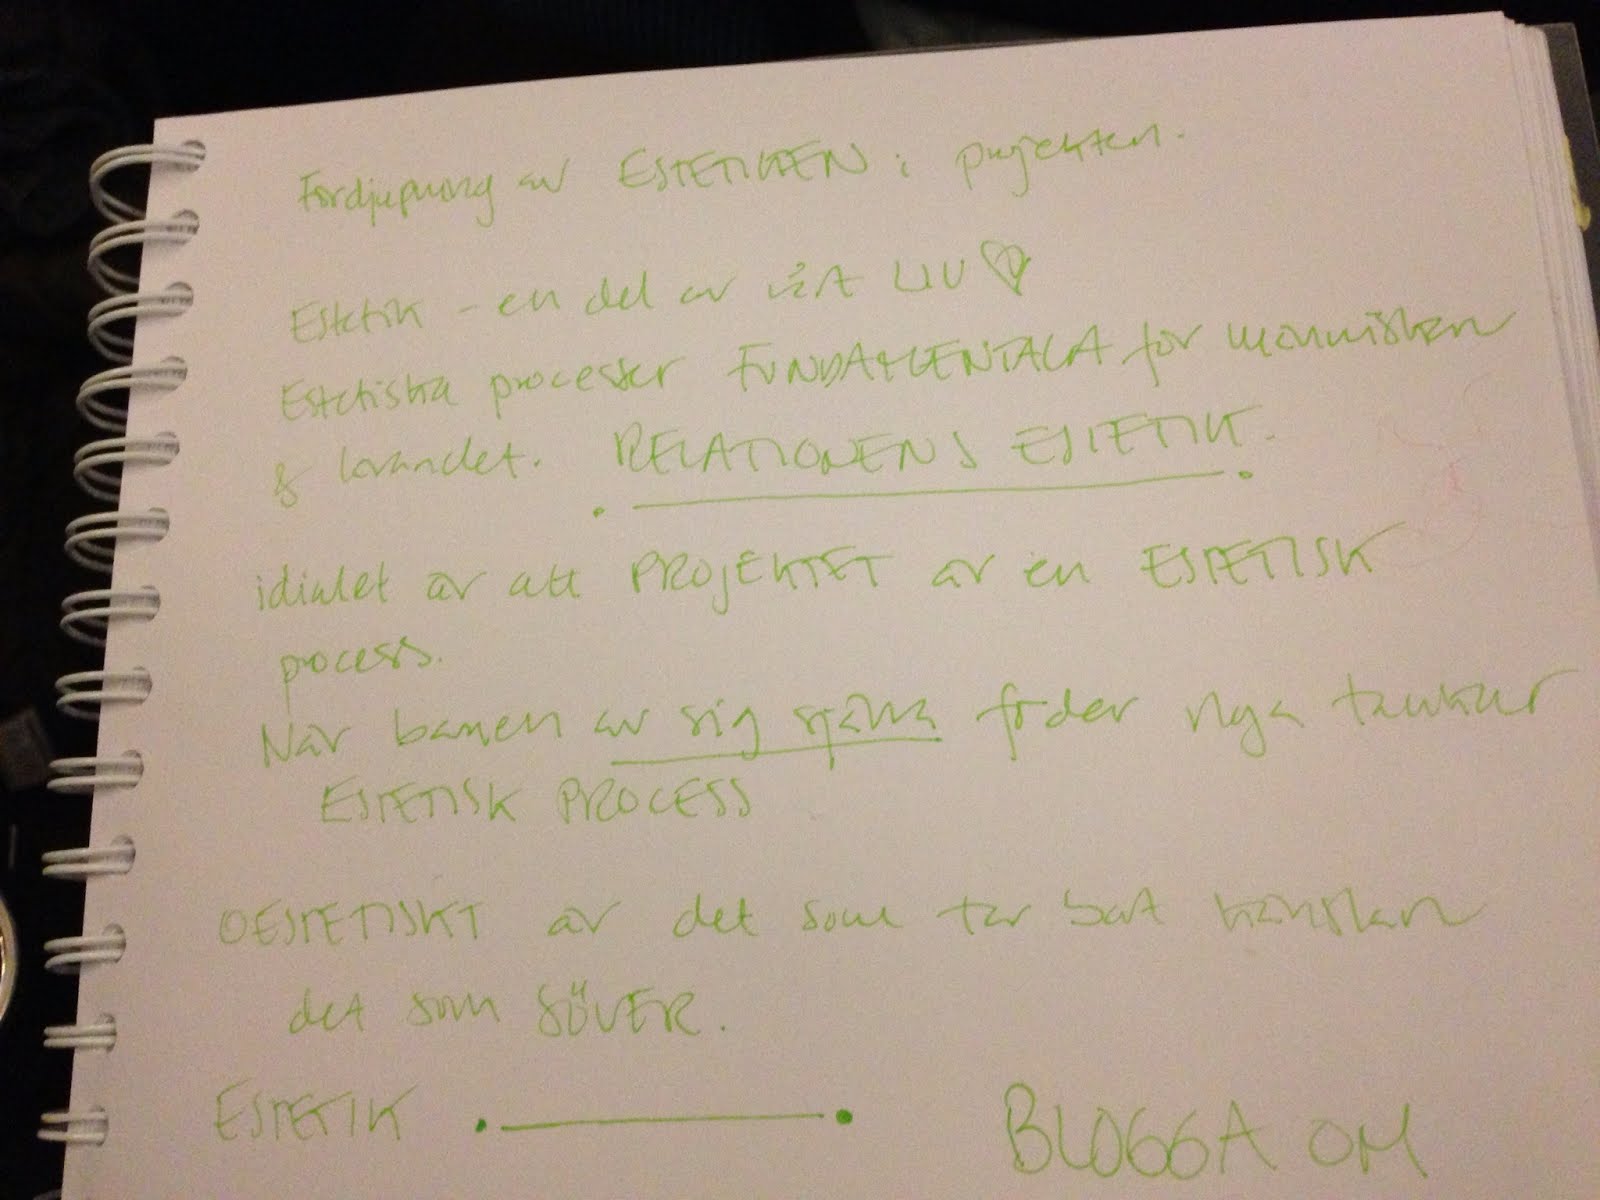 Fördjupning av ESTETIKEN i projekten.
Estetik - en del av vårt LIV ♡
Estetiska processer FUNDAMENTALA för människan
& lärandet. RELATIONENS ESTETIK.
idialet är att PROJEKTET är en ESTETISK
process.
När barnen av sig själva föder nya tankar
ESTETISK PROCESS
OESTETISKT är det som tar bort känslan
det som SÖVER.
ESTETIK
BLOGGA OM